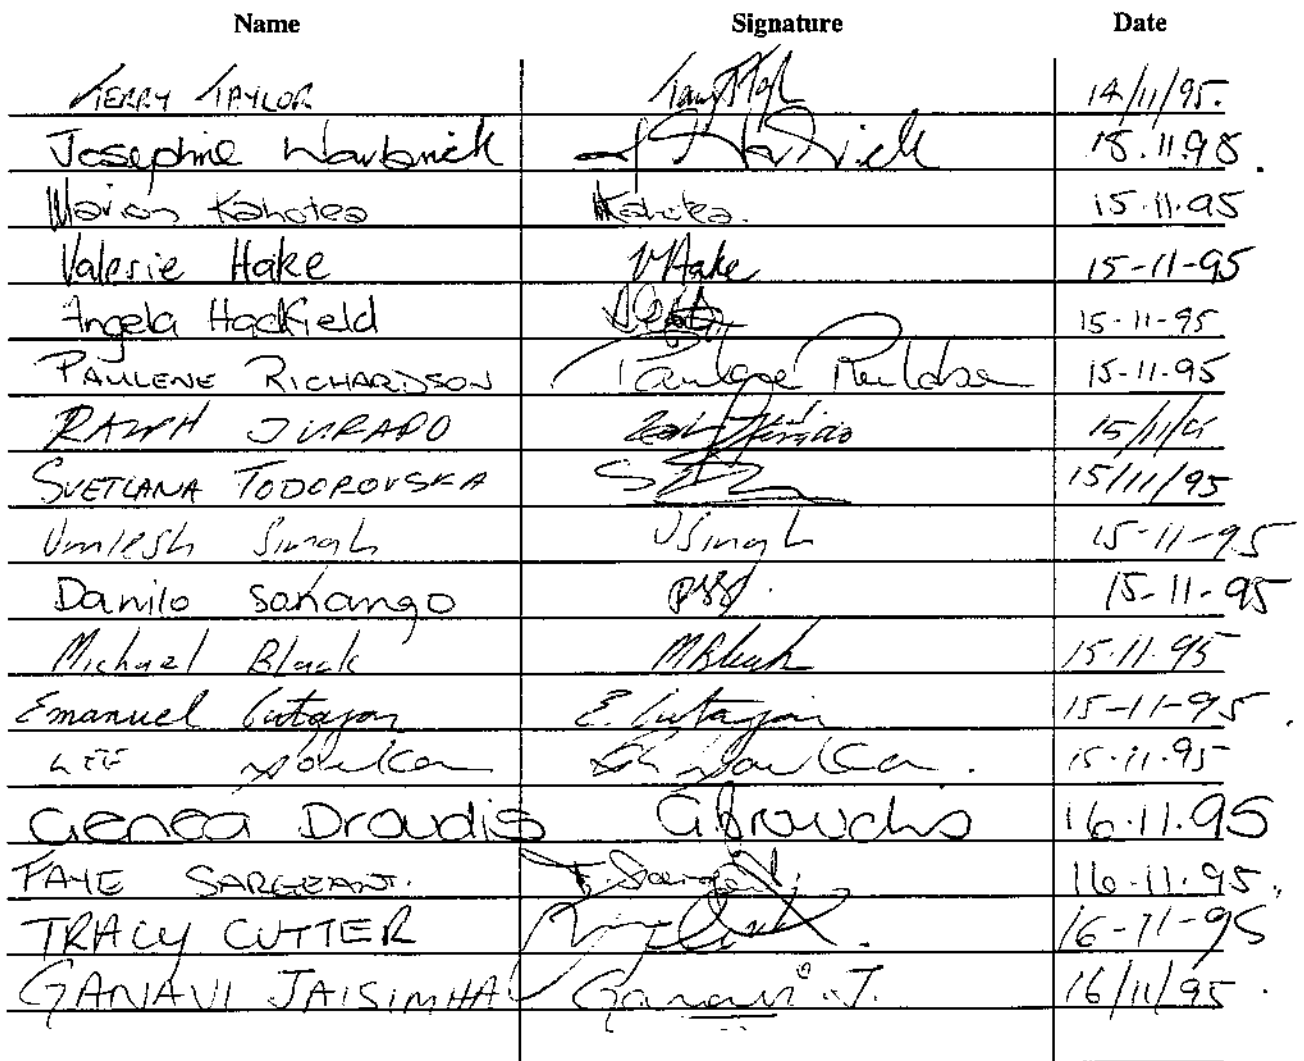 Name Signature Date
TERRY TAYLOR 14/11/95.
Josephine Warbrick 15.11.95.
Marion Kahotea Kahotea. 15.11.95
Valerie Hake VHake 15-11-95
Angela Hadfield 15-11-95
PAULENE RICHARDSON 15-11-95
RALPH JURADO 15/11/
SVETLANA TODOROVSKA 15/11/95
Umlesh Singh USingh 15-11-95
Danilo Sakango 15-11-95
Michael Black MBlack 15.11.95
Emanuel Cutajar E. Cutajar 15-11-95.
LEE 15.11.95
Genea Droudis G Droudis 16.11.95
FAYE SARGEANT. F. Sargeant. 16.11.95.
TRACY CUTTER 16-11-95
GANAVI JAISIMHA Ganavi .J. 16/11/95.